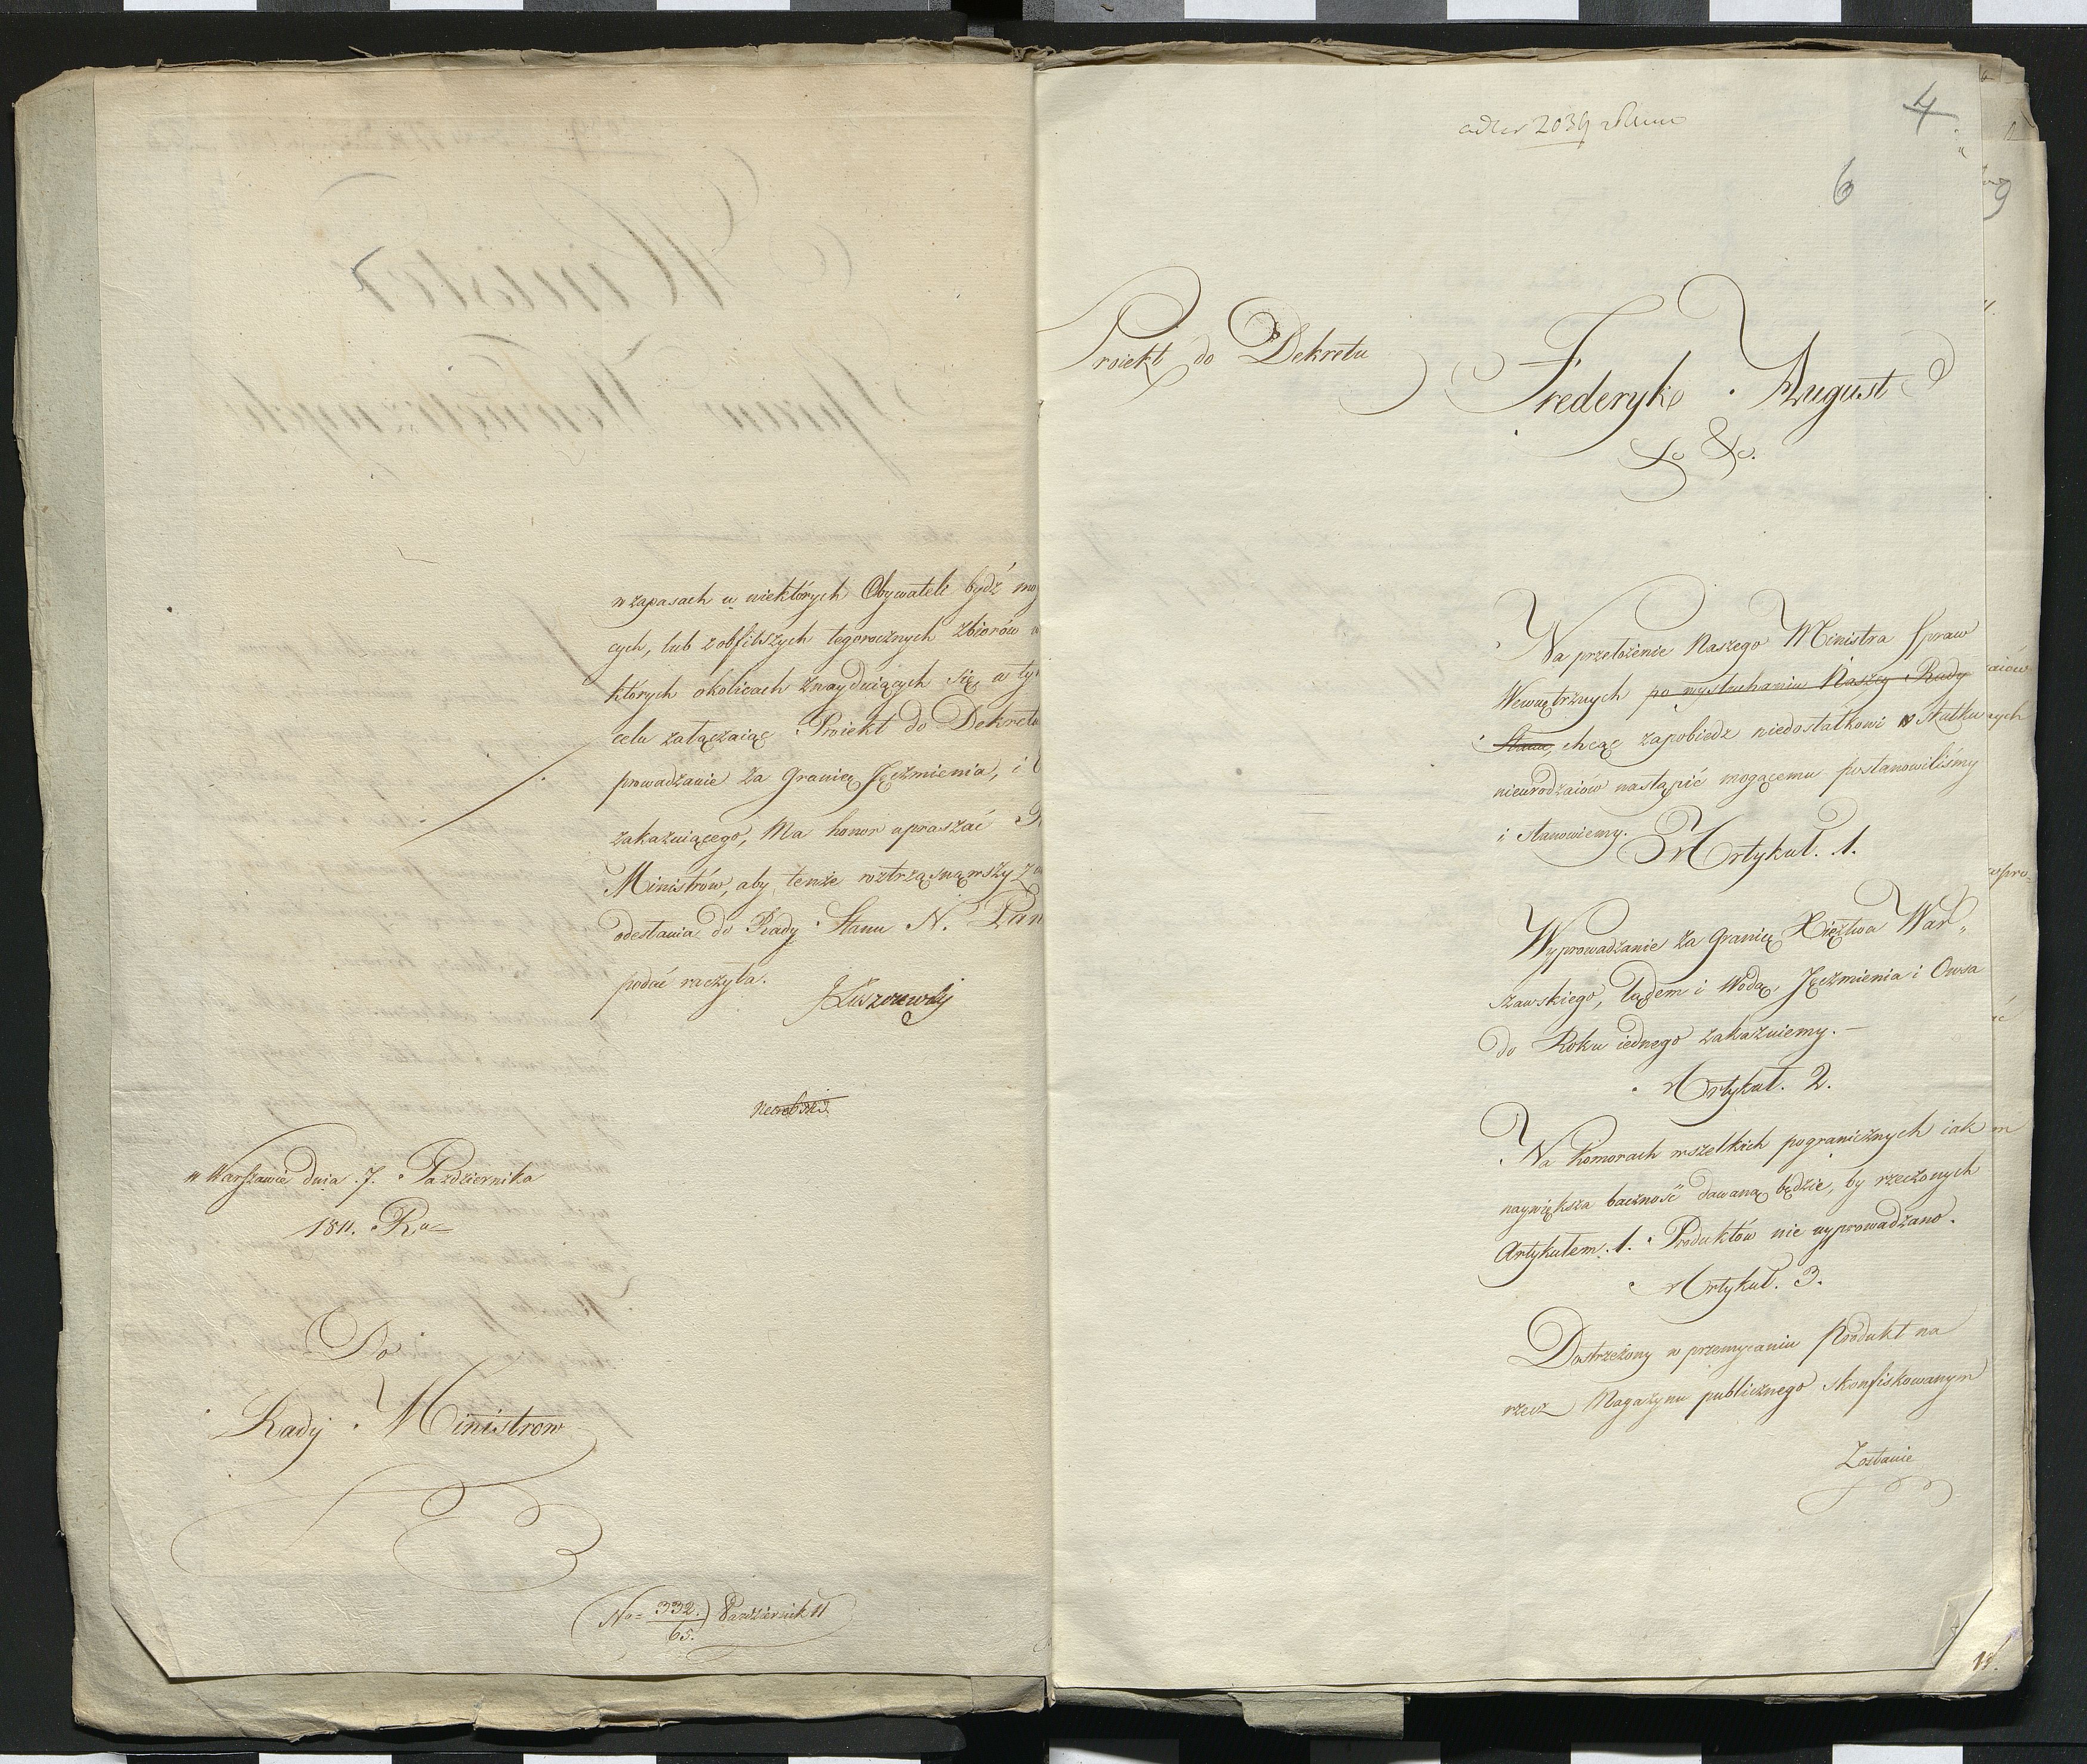 w zapasach u niektórych Obywateli bydź mog
cych, lub z obfitszych tegorocznych zbiorów w
których okolicach znayduiących się, w ty
celu załączaiąc Proiekt do Dekretu
prowadzanie za Granicę Jęczmienia, i
zakazuiącego, Ma honor upraszać R
Ministrów, aby tenże roztrząsnąwszy
odesłania do Rady Stanu N. Pan
podać raczyła.
JŁuszczewski
w Warszawie dnia 7. Października
1811. Ru
Do
Rady Ministrow
No 332./65. Październik 11
4
2039
6
Proiekt do Dekretu
Frederyk August
&c &c.
Na przełożenie Naszego Ministra Spraw
Wewnętrznych po wysłuchaniu Naszey Rady
Stanu, chcąc zapobiedz niedostatkowi w skutku
nieurodzaiow nastąpić mogącemu postanowiliśmy
i stanowiemy.
Artykuł. 1.
Wyprowadzanie za Granicę Xięztwa War„
szawskiego, lądem i Wodą, Jęczmienia i Owsa
do Roku iednego zakazuiemy. –
Artykuł. 2.
Na Komorach wszelkich pogranicznych iak
naywiększa baczność dawaną będzie, by rzeczonych
Artykułem. 1. Produktów nie wyprowadzano.
Artykuł. 3.
Dostrzeżony w przemycaniu Produkt na
rzecz Magazynu publicznego skonfiskowanym
Zostanie